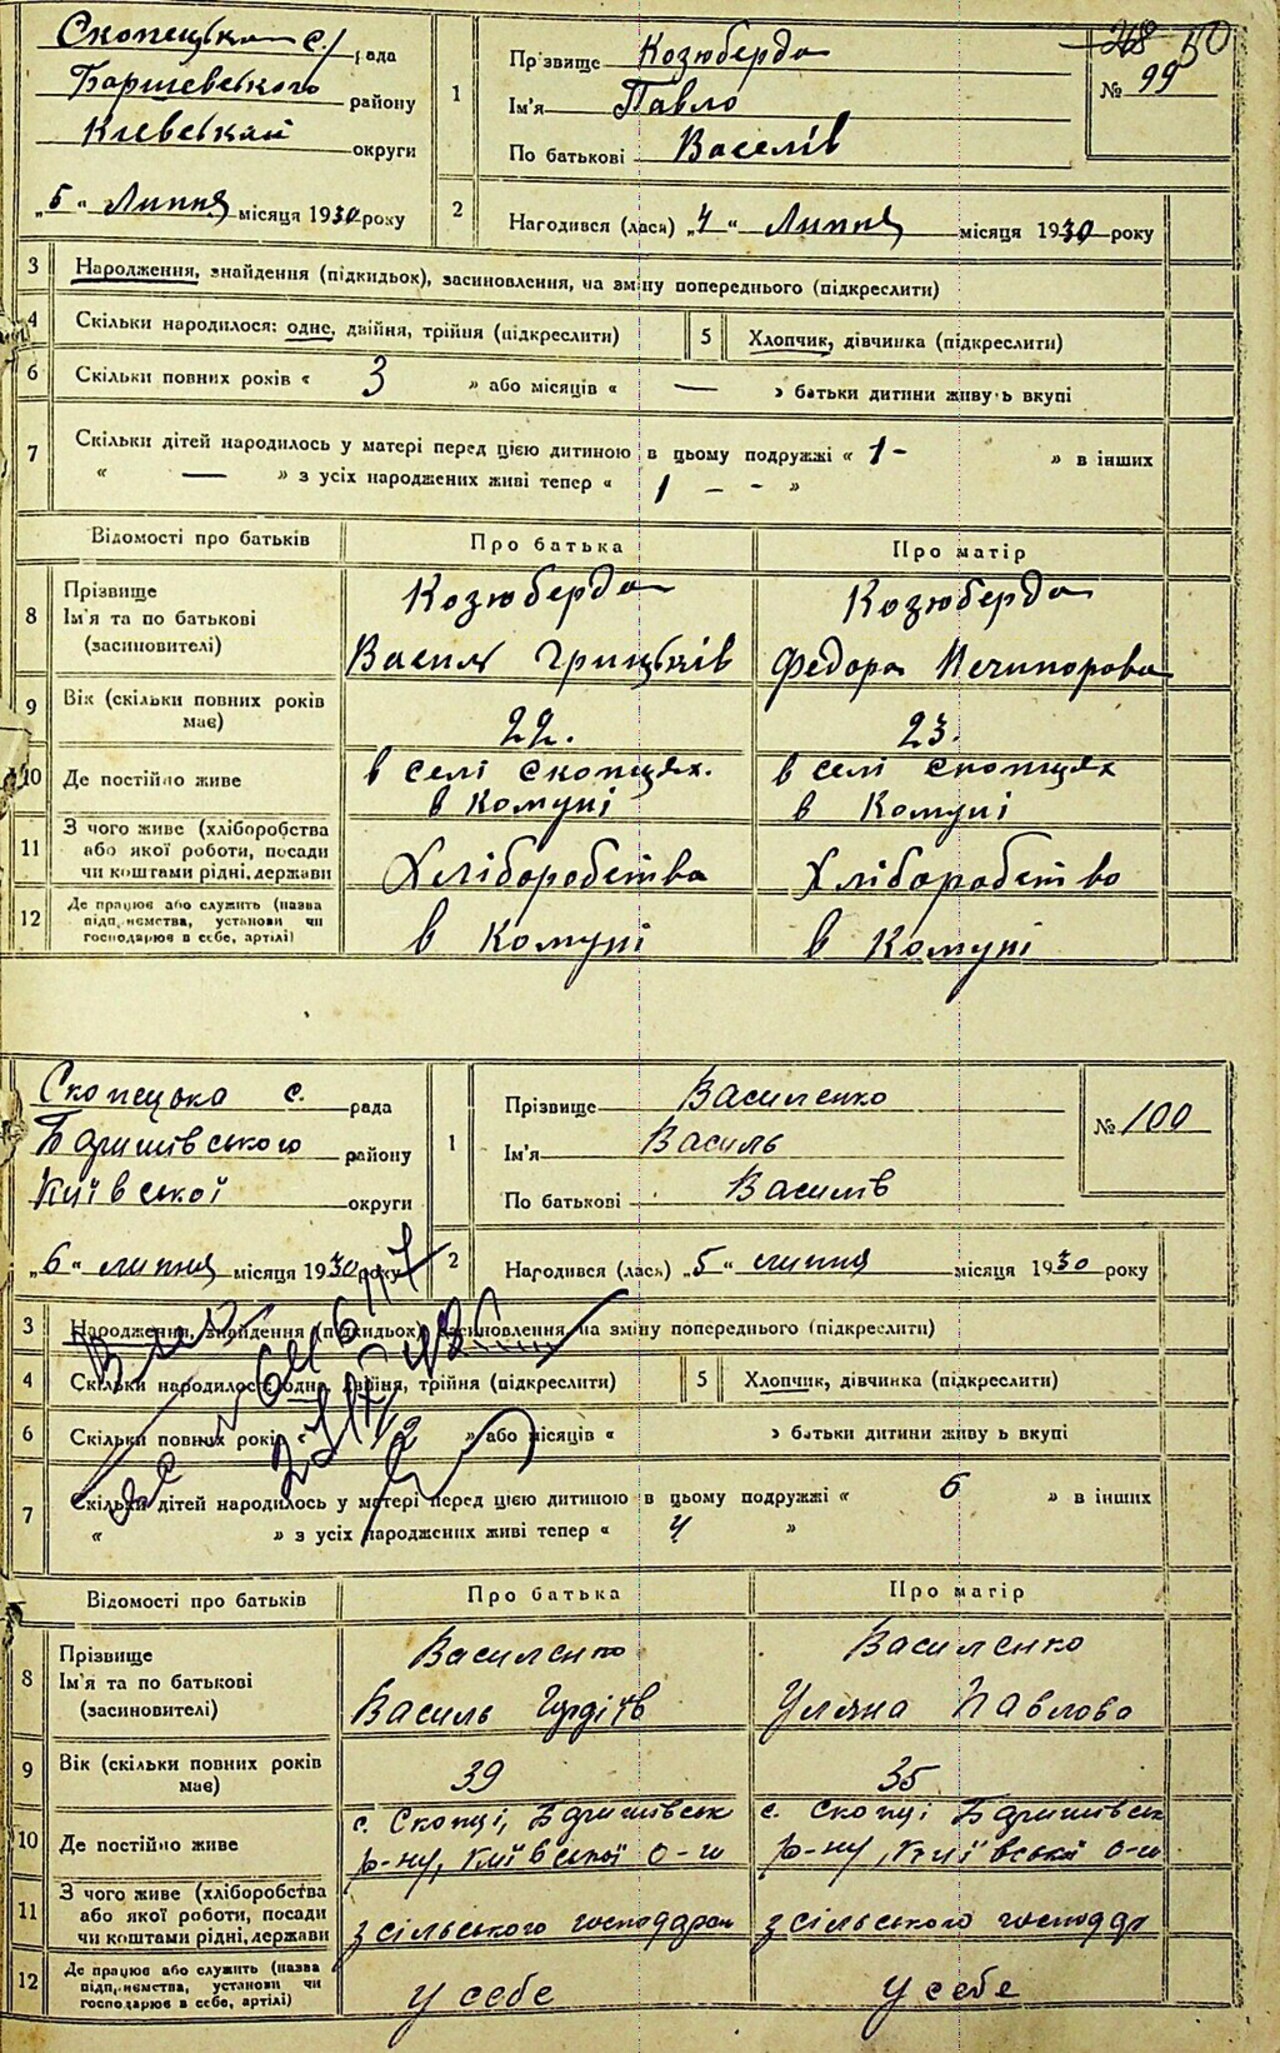 Скопецька с. рада
Баришевського району
Киевськай округи
„5“ Липня місяця 1930 року
1 Прізвище Козюберда
Ім'я Павло
По батькові Васелів
50
№ 99
2 Народився (лася) „4“ Липня місяця 1930 року
3 Народження, знайдення (підкидьок), засиновлення, на зміну попереднього (підкреслити)
4 Скільки народилося: одне, двійня, трійня (підкреслити) 5 Хлопчик, дівчинка (підкреслити)
6 Скільки повних років « 3 » або місяців « — » батьки дитини живуть вкупі
7 Скільки дітей народилось у матері перед цією дитиною в цьому подружжі « 1 - » в інших
« — » з усіх народжених живі тепер « 1 - - »
Відомості про батьків Про батька Про матір
8 Прізвище Ім'я та по батькові (засиновителі) Козюберда Козюберда
Василь Грицьків Федора Нечипорова
9 Вік (скільки повних років має) 22. 23.
10 Де постійно живе в селі скопцях. в селі скопцях
в комуні в комуні
11 З чого живе (хліборобства або якої роботи, посади чи коштами рідні, держави Хліборобства Хліборобство
12 Де працює або служить (назва підприємства, установи чи господарює в себе, артілі) в комуні в комуні
Скопецька с. рада
Баришівського району
Київської округи
„6“ липня місяця 1930 року
1 Прізвище Василенко
Ім'я Василь
По батькові Василів
№ 100
2 Народився (лася) „5“ липня місяця 1930 року
3 Народження, знайдення (підкидьок), засиновлення, на зміну попереднього (підкреслити)
4 Скільки народилося: одне, двійня, трійня (підкреслити) 5 Хлопчик, дівчинка (підкреслити)
6 Скільки повних років « 12 » або місяців « » батьки дитини живуть вкупі
7 Скільки дітей народилось у матері перед цією дитиною в цьому подружжі « 6 » в інших
« » з усіх народжених живі тепер « 4 »
Відомості про батьків Про батька Про матір
8 Прізвище Ім'я та по батькові (засиновителі) Василенко Василенко
Василь Уляна Павлова
9 Вік (скільки повних років має) 39 35
10 Де постійно живе с. Скопці, Баришівськ с. Скопці Баришівськ
р-ну, Київської о-ги р-ну, Київської о-ги
11 З чого живе (хліборобства або якої роботи, посади чи коштами рідні, держави з сільського господарс з сільського господар
12 Де працює або служить (назва підприємства, установи чи господарює в себе, артілі) у себе у себе